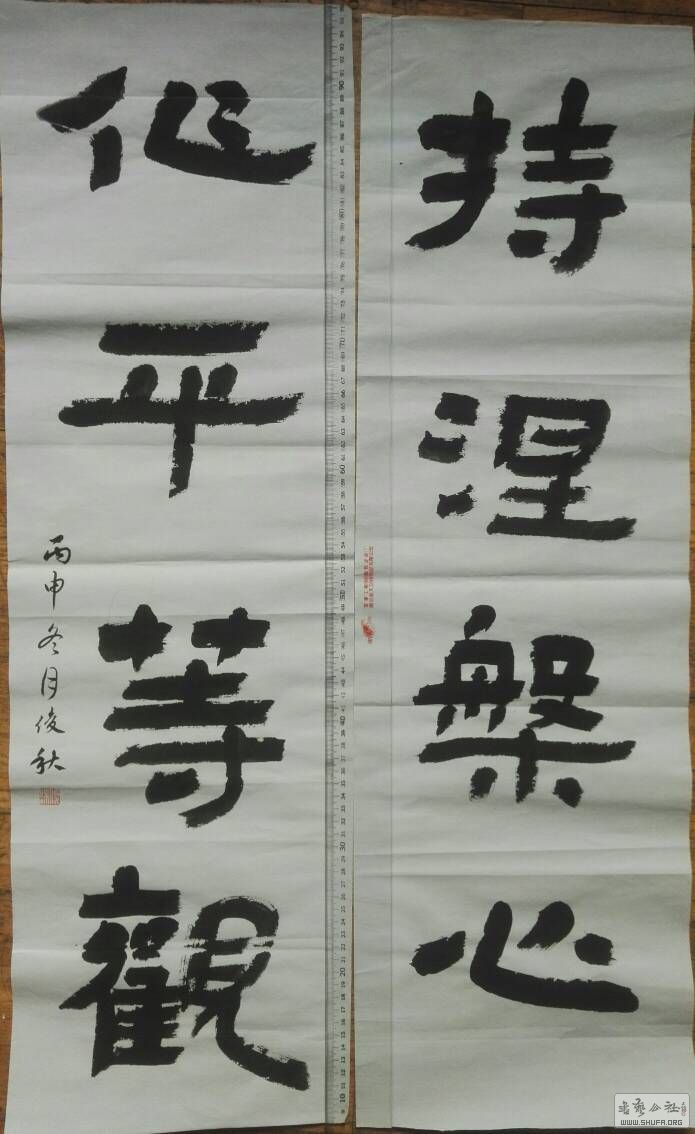 持涅槃心
作平等觀
丙申冬月俊秋
书艺公社
WWW.SHUFA.ORG